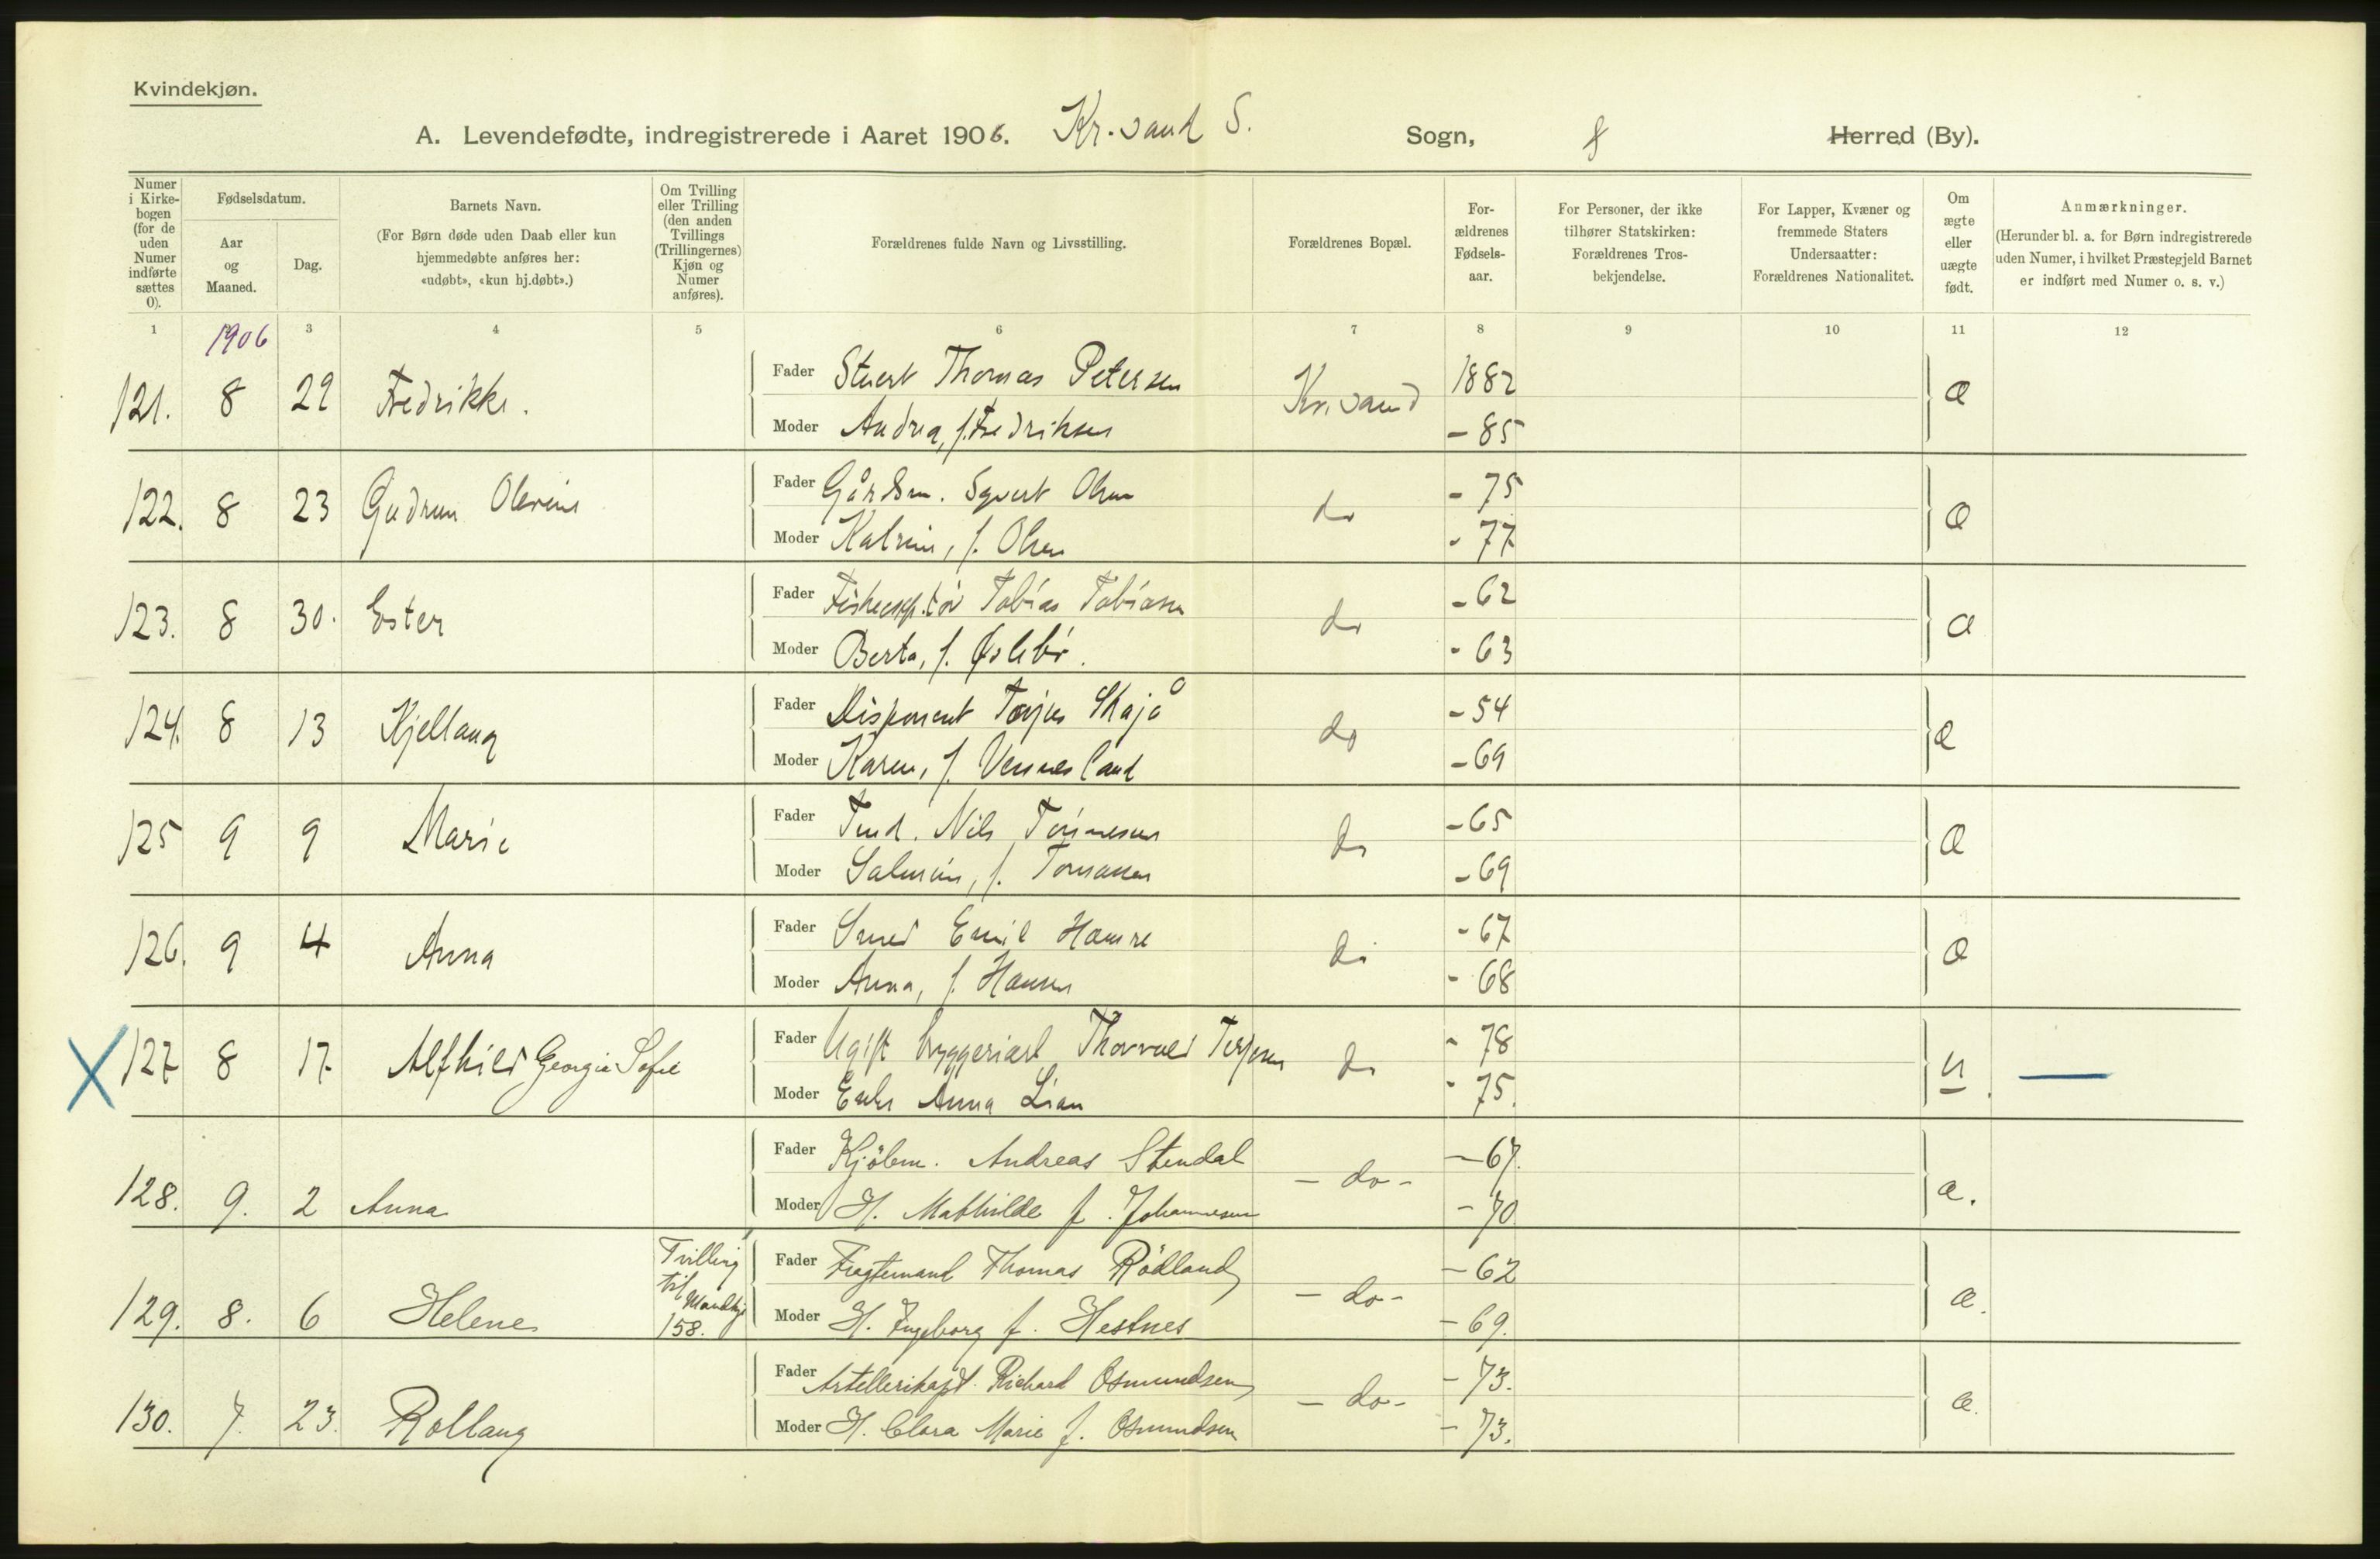 Kvindekjøn.
A. Levendefødte, indregistrerede i Aaret 1906. Kr.sand S. Sogn, Herred (By).
Numer i Kirkebogen (for de uden Numer indførte sættes 0).
Fødselsdatum.
Aar og Maaned.
Dag.
Barnets Navn.
(For Børn døde uden Daab eller kun hjemmedøbte anføres her: «udøbt», «kun hj.døbt».)
Om Tvilling eller Trilling (den anden Tvillings (Trillingernes) Kjøn og Numer anføres).
Forældrenes fulde Navn og Livsstilling.
Forældrenes Bopæl.
Forældrenes Fødselsaar.
For Personer, der ikke tilhører Statskirken: Forældrenes Trosbekjendelse.
For Lapper, Kvæner og fremmede Staters Undersaatter: Forældrenes Nationalitet.
Om ægte eller uægte født.
Anmærkninger.
(Herunder bl. a. for Børn indregistrerede uden Numer, i hvilket Præstegjeld Barnet er indført med Numer o. s. v.)
1 3 4 5 6 7 8 9 10 11 12
1906
Fader Stuert Thomas Petersen 1882
121. 8 29 Fredrikke. Kr.sand æ
Moder Andrea, f. Fredriksen - 85
Fader Gårdsm. Syvert Olsen - 75
122. 8 23 Gudrun Olevine do æ
Moder Katrine, f. Olsen - 77
Fader Tobias Tobiasen - 62
123. 8 30. Ester do æ
Moder Berta, f. Øslebø. - 63
Fader Disponent Terjus Skajå - 54
124. 8 13 Kjellaug do æ
Moder Karen, f. Vennesland - 69
Fader Nils Tønnesen - 65
125 9 9 Marie do æ
Moder Salmine, f. Tomassen - 69
Fader Smed Emil Hamre - 67
126. 9 4 Anna do æ
Moder Anna, f. Hansen - 68
Fader Ugift bryggeriarb. Thorvald Terjesen - 78
X 127 8 17 Alfhild Georgia Sofie do u. —
Moder Enke Anna Lian - 75.
Fader Kjølem. Andreas Stendal - 67.
128. 9. 2 Anna - do - æ.
Moder H. Mathilde f. Johannesen - 70
Fader Fragtemand Thomas Rødland - 62
129. 8. 6 Helene Tvilling til Mandkj. 158. - do - æ.
Moder H. Ingeborg f. Hestnes - 69.
Fader Artellerikapt. Richard Osmundsen - 73.
130. 7. 23. Rollaug - do - æ.
Moder H. Clara Marie f. Osmundsen - 73.